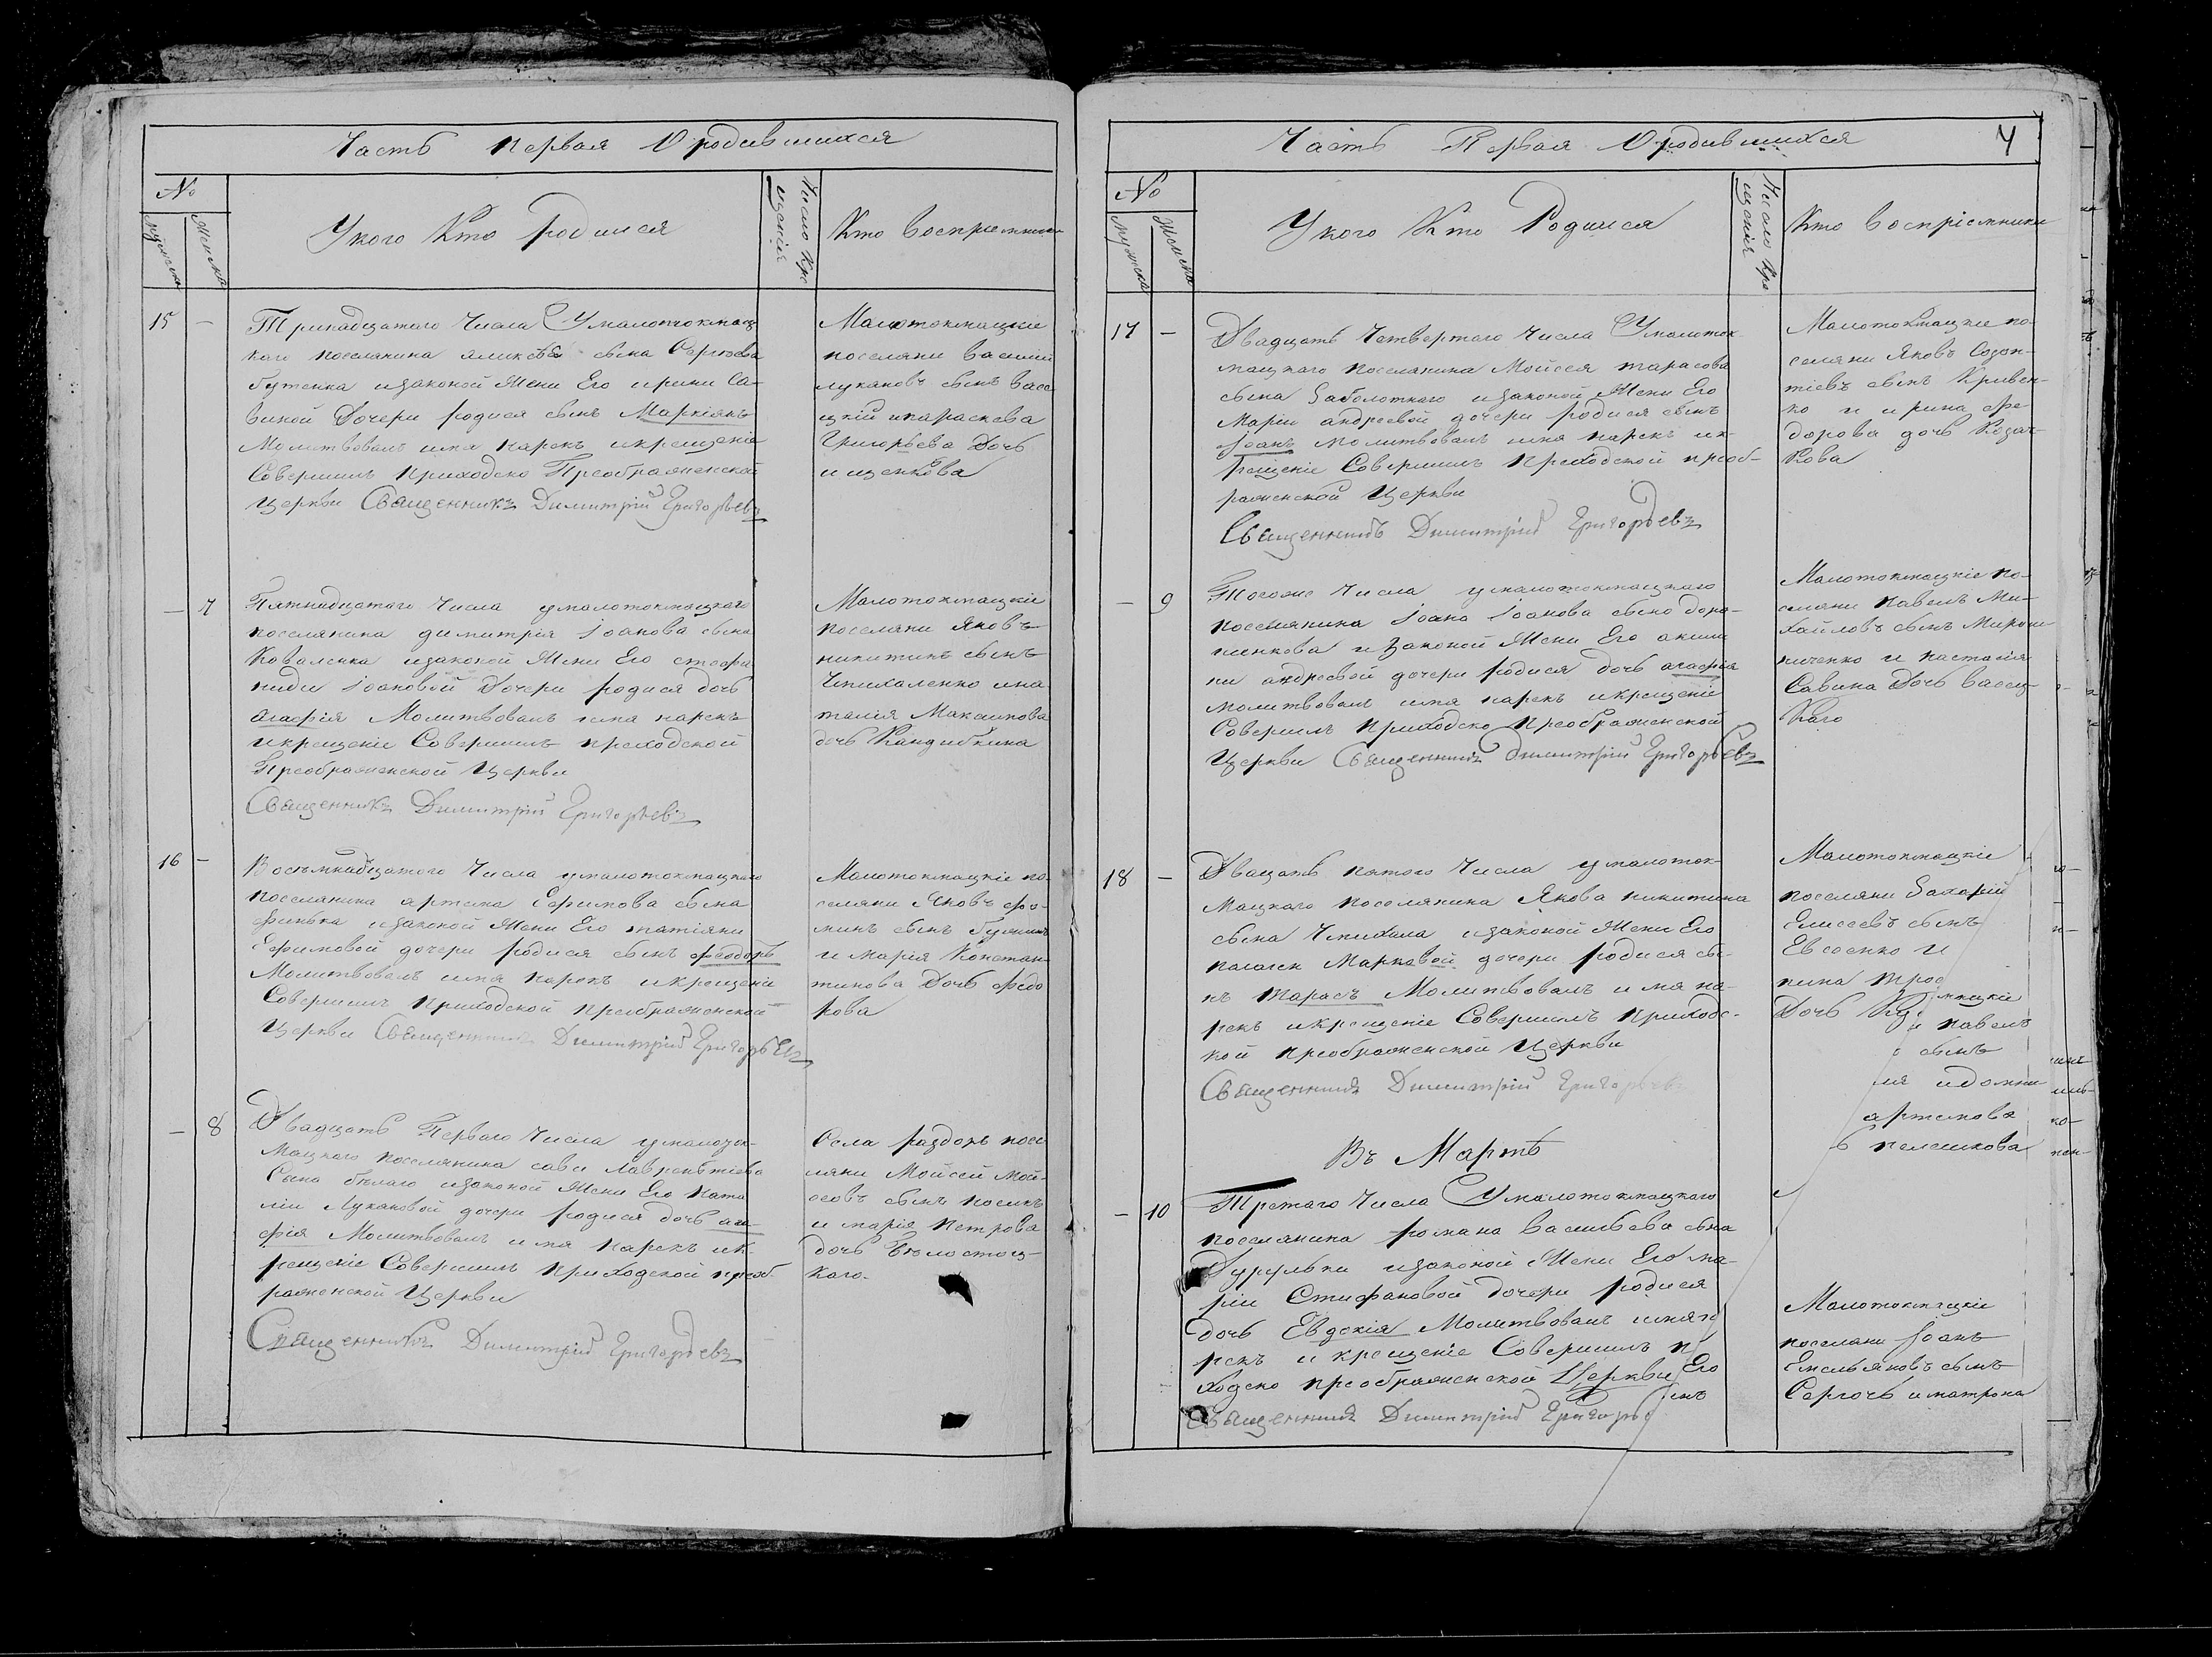 Часть первая О родившихся
№
мужеска
женска
У кого Кто родился
Число Кре
щения
Кто восприемники
15 —
Тринадцатого Числа У малотокмац
каго поселянина сына Сергеева
бутенка изаконой Жени Его ирини Са-
виной Дочери родися сынъ Маркіянъ
Молитвовалъ имя нарекъ икрещеніе
Совершилъ приходско Преображенской
Церкви Священникъ Димитрій Григорьевъ
Малотокмацкие
поселяни василій
лукяновъ сынъ васе
цкій ипараскева
Григорьева Дочь
ищенкова
— 7
Пятнадцатого Числа умалотокмацкаго
поселянина димитрія іоанова сына
Коваленка изаконой Жени Его стефа
ниди іоановой Дочери родися дочь
агафія Молитвовалъ имя нарекъ
икрещеніе Совершилъ преходской
Преображенской Церкви
Священникъ Димитрій Григорьевъ
Малотокмацкіе
поселяни Яковъ
никитинъ сынъ
Чмихаленко ина
талія Максимова
дочь Кандибкина
16 —
Восъмнадцатого Числа умалотокмацкаго
поселянина артема Ефимова сына
финька изаконой Жени Его татіяни
Ефимовой дочери родися сынъ феодоръ
Молитвовалъ имя нарекъ икрещеніе
Совершилъ приходской преображенской
Церкви Священникъ Димитрій Григорьевъ
Малотокмацкіе по-
селяни Яковъ фо-
минъ сынъ
и марія Констан-
тинова Дочь федо
рова
— 8
Двадцать Перваго Числа умалоток-
мацкого поселянина сави лаврентіева
Сына белаго изаконой Жени Его ната
ліи Лукяновой дочери родися дочь ага-
фія Молитвовалъ имя нарекъ ик-
рещеніе Совершилъ приходской преоб-
раженской Церкви
Священникъ Димитрій Григорьевъ
Села раздоръ посе
ляни Мойсей Мой-
сеовъ сынъ носикъ
и марія петрова
дочь Белостоц-
каго.
Часть Первая О родившихся
4
№
мужеска
женска
У кого Кто Родился
Число Кре
щенія
Кто воспріемники
17 —
Двадцать Четвертого Числа У малоток-
мацкаго поселянина Мойсея тарасова
сына Заболотнаго изаконой Жени Его
Маріи андреевой дочери родися сынъ
іоанъ молитвовалъ имя нарекъ ик-
рещеніе Совершилъ приходской преоб-
раженской Церкви
Священникъ Димитрій Григорьевъ
Малотокмацкие по-
селяни Яковъ Созон-
тіевъ сынъ Кривен-
ко и ирина фе
дорова дочь Козач-
кова
— 9
Тогоже Числа умалотокмацкаго
поселянина іоана іоанова сына доро-
шенкова изаконой Жени Его акили
ни андреевой дочери родися дочь агафія
молитвовалъ имя нарекъ икрещеніе
Совершилъ приходско преображенской
Церкви Священникъ Димитрій Григорьевъ
Малотокмацкіе по-
селяни павелъ Ми-
хайловъ сынъ Мирош-
ниченко и настасія
Савина Дочь васец-
каго
18 —
Двацать пятого Числа умалоток-
мацкаго поселянина Якова никитина
сына Чмихала изаконой Жени Его
пелагеи Марковой дочери родися сы-
нъ тарасъ Молитвовалъ имя на-
рекъ икрещеніе Совершилъ приходс-
кой преображенской Церкви
Священникъ Димитрій Григорьевъ
Малотокмацкіе
поселяни Захарій
Елисеевъ сынъ
Евсеенко и
Дочь
мацкіе
павелъ
сынъ
артемова
пелешкова
Въ Мартѣ
— 10
Третаго Числа У малотокмацкаго
поселянина романа васильева сына
Дурулъки изаконой Жени Его ма-
ріи Стифановой дочери родися
дочь Евдокія Молитвовалъ имя н
рекъ и крещеніе Совершилъ п
ходско преображенской Церкви Его
Священникъ Димитрій Григорье
Малотокмацкіе
поселяни іоанъ
Емельяновъ сынъ
Сергочь иматрона